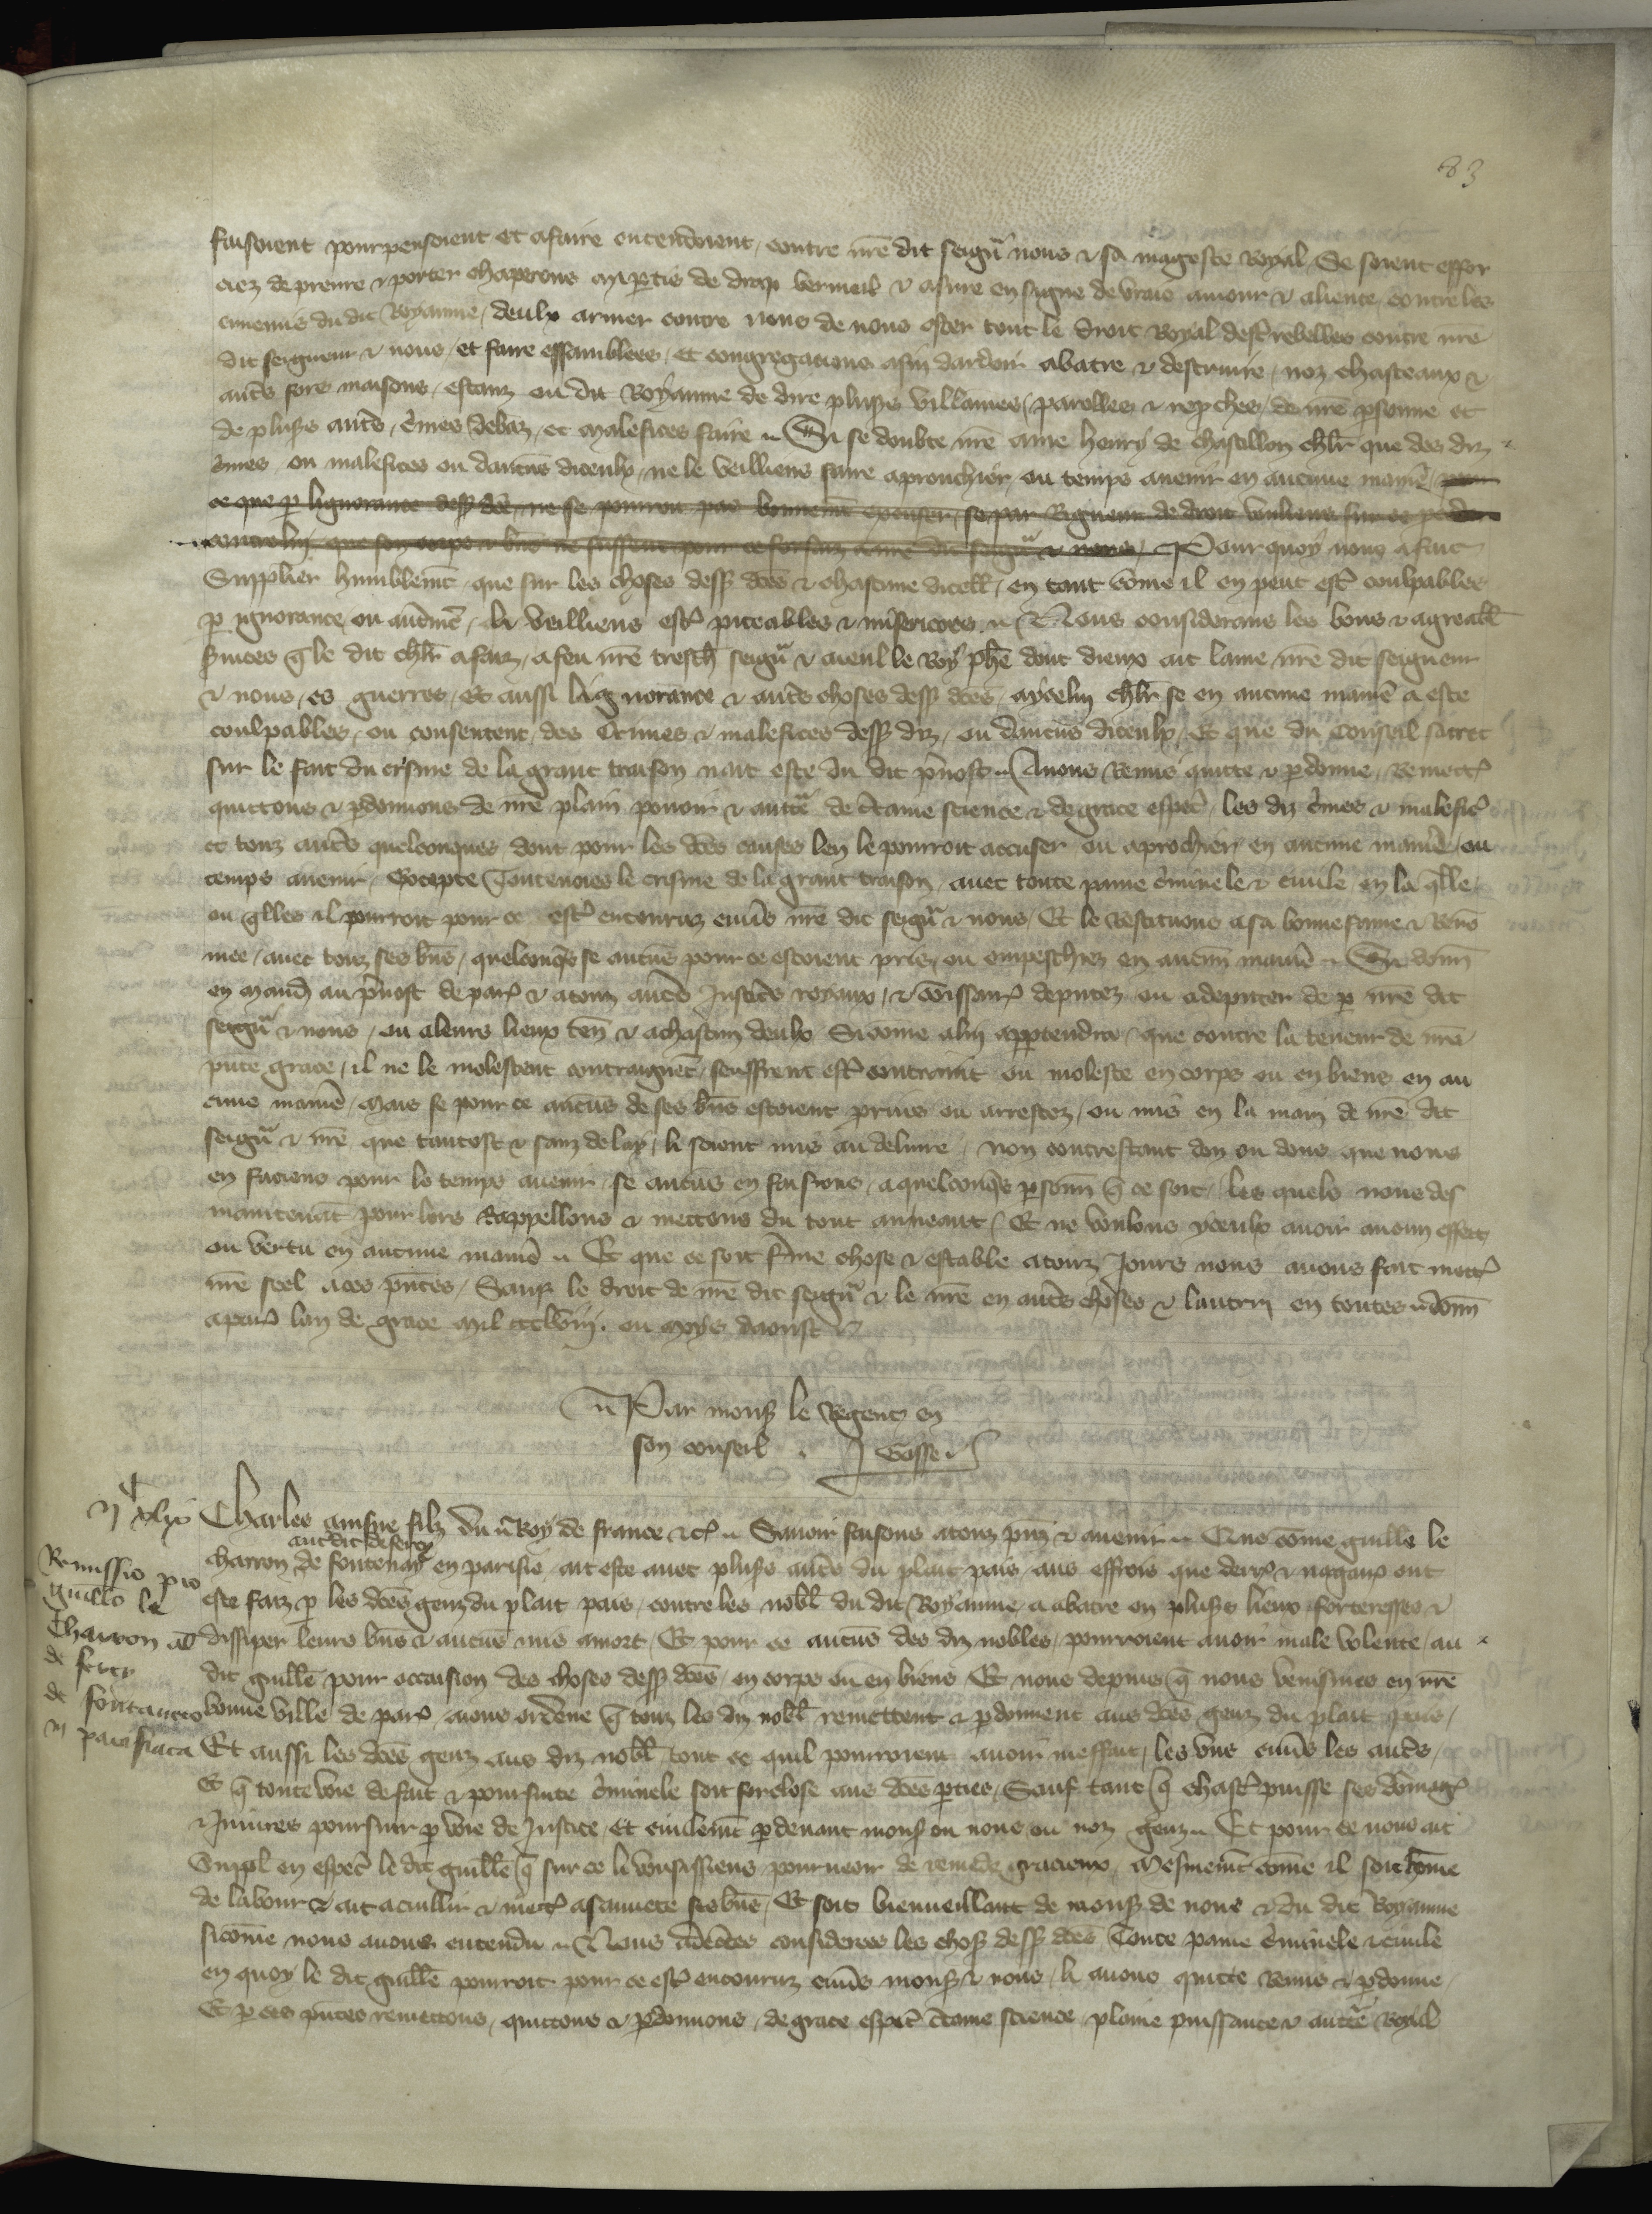 83
faisoient pourpensoient et afaire entendoient contre nre dit seigur nous & sa mageste Royal Se soient effor
ciez de prenre & porter chaperons mipartis de drap vermeil & asure en signe de vraie amour & aliente contre les
ennemis du dit Royaume / deulx armer contre nous de nous oster tout le droit Royal destre rebelles contre nre
dit seigneur & nous / et faire assamblees / et congregations afin dardoir abatre & destruire / noz chasteaux &
autrs fors maisons / estanz ou dit Royaume de dire plusrs villanies / parolles & repches / de nre psonne et
de plusrs autrs / cmes debaz / et malefices faire Si se doubte nre ame henry de chastillon chlr que des diz
cmes ou malefices ou daucuns diceulx / ne le veilliens faire aprouchier / ou temps avenir en aucune manie / pour
ce que p lignorance dess dcs / ne se pourroit pas bonnemt excuser / se par Rigueur de droit vouliens sur ce pceder
contre luy que son corps & bns ne fussent pour ce forfaiz a nre dit seigur & nous / Pourquoy nous a fait
Supplier humblemt que sur les choses dess dces & chascune dicell / en tant come il en peut estr coulpables
p ignorance ou autremt / li veilliens estr piteables & misericors Nous considerans les bons & agreabl
svices q le dit chlr a faiz / a feu nre tresch seigur & aieul le Roy phe dont dieux ait lame / nre dit seigneur
& nous / es guerres / Et aussi lignorance & autrs choses dess dces / aycelui chlr se en aucune manie a este
coulpables / ou consentent / des Crimes & malefices dess diz / ou daucuns diceulx / Et que du Conseil sacret
sur le fait du crisme de la grant traison nait este du dit prevost Avons Remis quitte & pdonne / Remettr
quittons & pdonnons de nre plain povoir & autte de ctaine science & de grace especl / les diz cmes & malefic
et touz autrs quelconques dont pour les dces causes len le pourroit accuser ou aprochier en aucune manie / ou
temps avenir / Excepte Toutevoies le crisme de la grant traison / avec toute paine cminele & civile en la qlle
ou qlles il pourroit pour ce estr encouruz envrs nre dit seigur & nous / Et le Restituons a sa bonne fame & Reno
mee / avec touz ses bns / quelconqs se aucuns pour ce estoient pris / ou empeschiez en aucun manie Si donn
en mand au prevost de par & a touz autrs Justicrs royaux / & comissair deputez ou a deputer de p nre dit
seigur & nous / ou a leurs lieux ten & a chascun deulx Sicome a lui appartendra / que contre la teneur de nre
pnte grace / il ne le molestent contraignent / seuffrent estr contraint ou moleste en corps ou en biens en au
cune manie / Mais se pour ce aucuns de ses bns estoient prins ou arrestez / ou mis en la main de nre dit
seigur & nre que tantost & sanz delay / li soient mis au delivre / non contrestant don ou dons que nous
en faciens pour le temps avenir / se aucuns en faisions / a quelconqs psonn q ce soit / les quels nous des
maintenat pour lors Rappellons & mettons du tout au neant / Et ne voulons yceulx avoir aucun effect
ou vertu en aucune manie Et que ce soit fme chose & estable a touz Jours nous avons fait mettr
nre seel a ces pntes / Sauf le droit de nre dit seigur & le nre en autrs choses & lautrui en toutes donn
a par lan de grace mil ccclviij. ou moys daoust
Par mons le Regent en
son conseil . J Gosse
n xlix
Charles ainsne filz du Roy de france &c Savoir faisons a touz pnz & avenir Que come guille le
aut dit de fercy
charron de fontenay en parisie / ait este avec plusrs autrs du plait pais / aus effrois que derr & nagair ont
Remissio pro
guillo le
Charron
de fercy
de fontaneto
n parisiaca
este faiz p les dces genz du plait pais / contre les nobl du dit Royaume a abatre en plusrs lieux forteresses &
dissiper leurs bns & aucuns mis a mort / Et pour ce aucuns des diz nobles / pourroient avoir male volente / au
dit guille pour occasion des choses dess dces / en corps ou en biens Et nous depuis q nous venismes en nre
bonne ville de par avons ordene q touz les diz nobl remettent & pdonnent aus dces genz du plait pais /
Et aussi les dces genz aus diz nobl tout ce quil pourroient avoir meffait / les uns envrs les autrs /
Et q toute voie de fait & poursuite cminele soit forclose aus dces pties / Sauf tant q chascr puisse ses domag
& Iniures poursuir p voie de Justice / Et civilemt pdevant mons ou nous ou noz genz Et pour ce nous ait
Suppl en especl le dit guille q sur ce li voulsissiens pourveoir de remede gracieux / Mesmemt come il soit home
de labour & ait a cuillir & mettr a sauvete ses bns / Et soit bienveillant de mons de nous & du dit Royaume
sicome nous avons entendu Nous adecrtes considerees les chos dess dces Toute paine cminele & civile
en quoy le dit guille pourroit pour ce estr encouruz envrs mons & nous / li avons quitte Remis & pdonne /
Et p ces pntes remettons / quittons & pdonnons / de grace especl ctaine science / plaine puissance & autte Royal